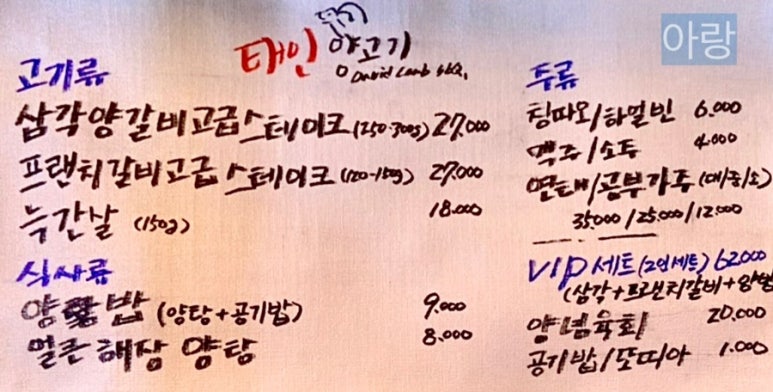 태인 양고기
David Lamb BBQ
아랑
고기류
삼각양갈비고급스테이크(250-300g) 27.000
프랜치갈비고급스테이크(120-150g) 27.000
늑간살 (150g) 18.000
식사류
(양탕+공기밥) 9.000
얼큰해장 양탕 8.000
주류
칭따오/하얼빈 6.000
맥주/소주 4.000
연태/공부가주(대/중/소)
35.000/25.000/12.000
VIP세트(2인세트) 62.000
(삼각+프랜치갈비+양
양념육회 20.000
공기밥/또띠아 1.000